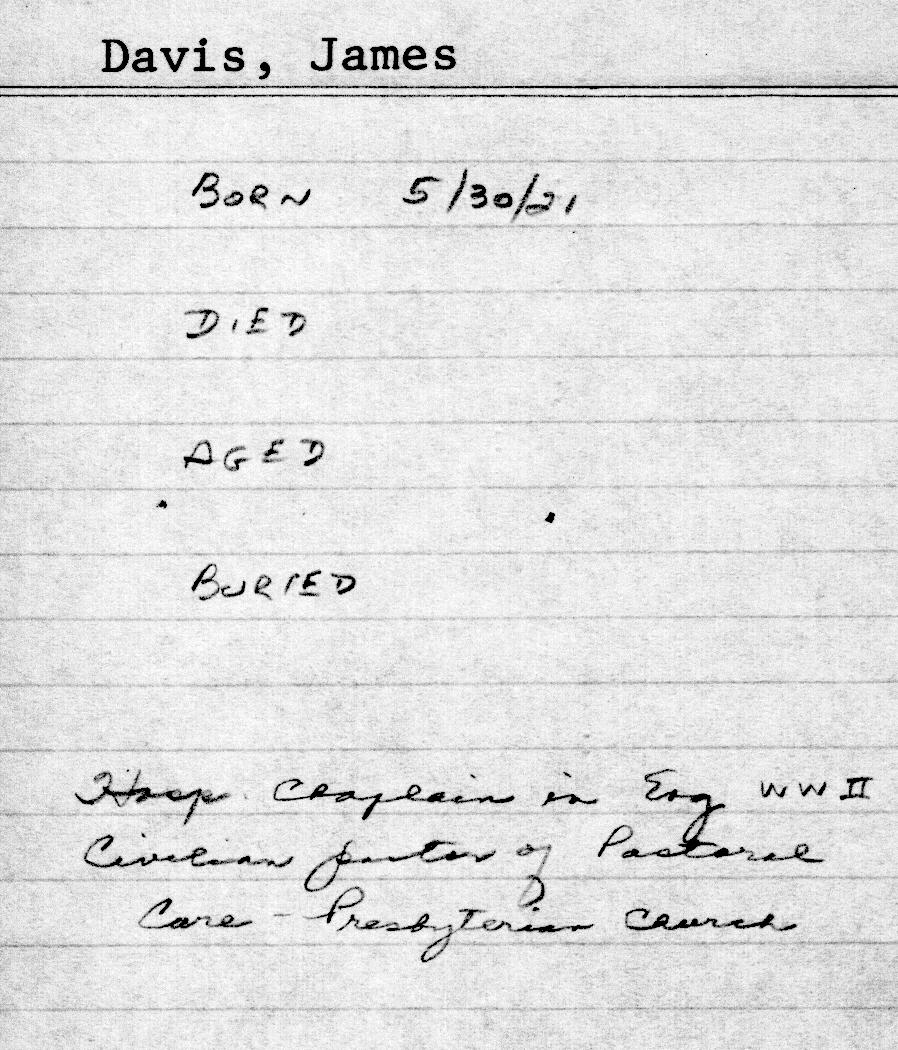 Davis, James
BORN 5/30/21
DIED
AGED
BURIED
Hosp. Chaplain in Eng WW II
Civilian pastor of Pastoral
Care - Presbyterian Church